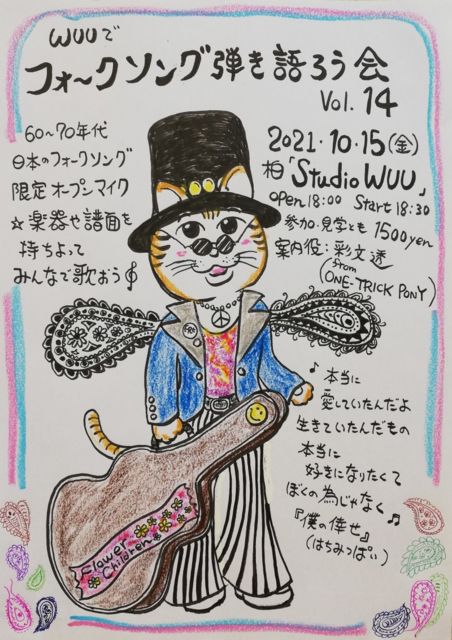 WUUで
フォ〜クソング弾き語ろう会
Vol. 14
60〜70年代
日本のフォークソング
限定オープンマイク
☆楽器や譜面を
持ちよって
みんなで歌おう
2021・10・15(金)
柏「Studio WUU」
open 18:00 Start 18:30
参加・見学とも 1500yen
案内役：彩文透
(from
ONE-TRICK PONY)
♪本当に
愛していたんだよ
生きていたんだもの
本当に
好きになりたくて
ぼくの為じゃなく♫
『僕の倖せ』
(はちみつぱい)
Flower
Children